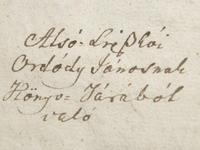 Alsó-Lieſzkói
Ordódy Jánosnak
Könyv-Tárából
való